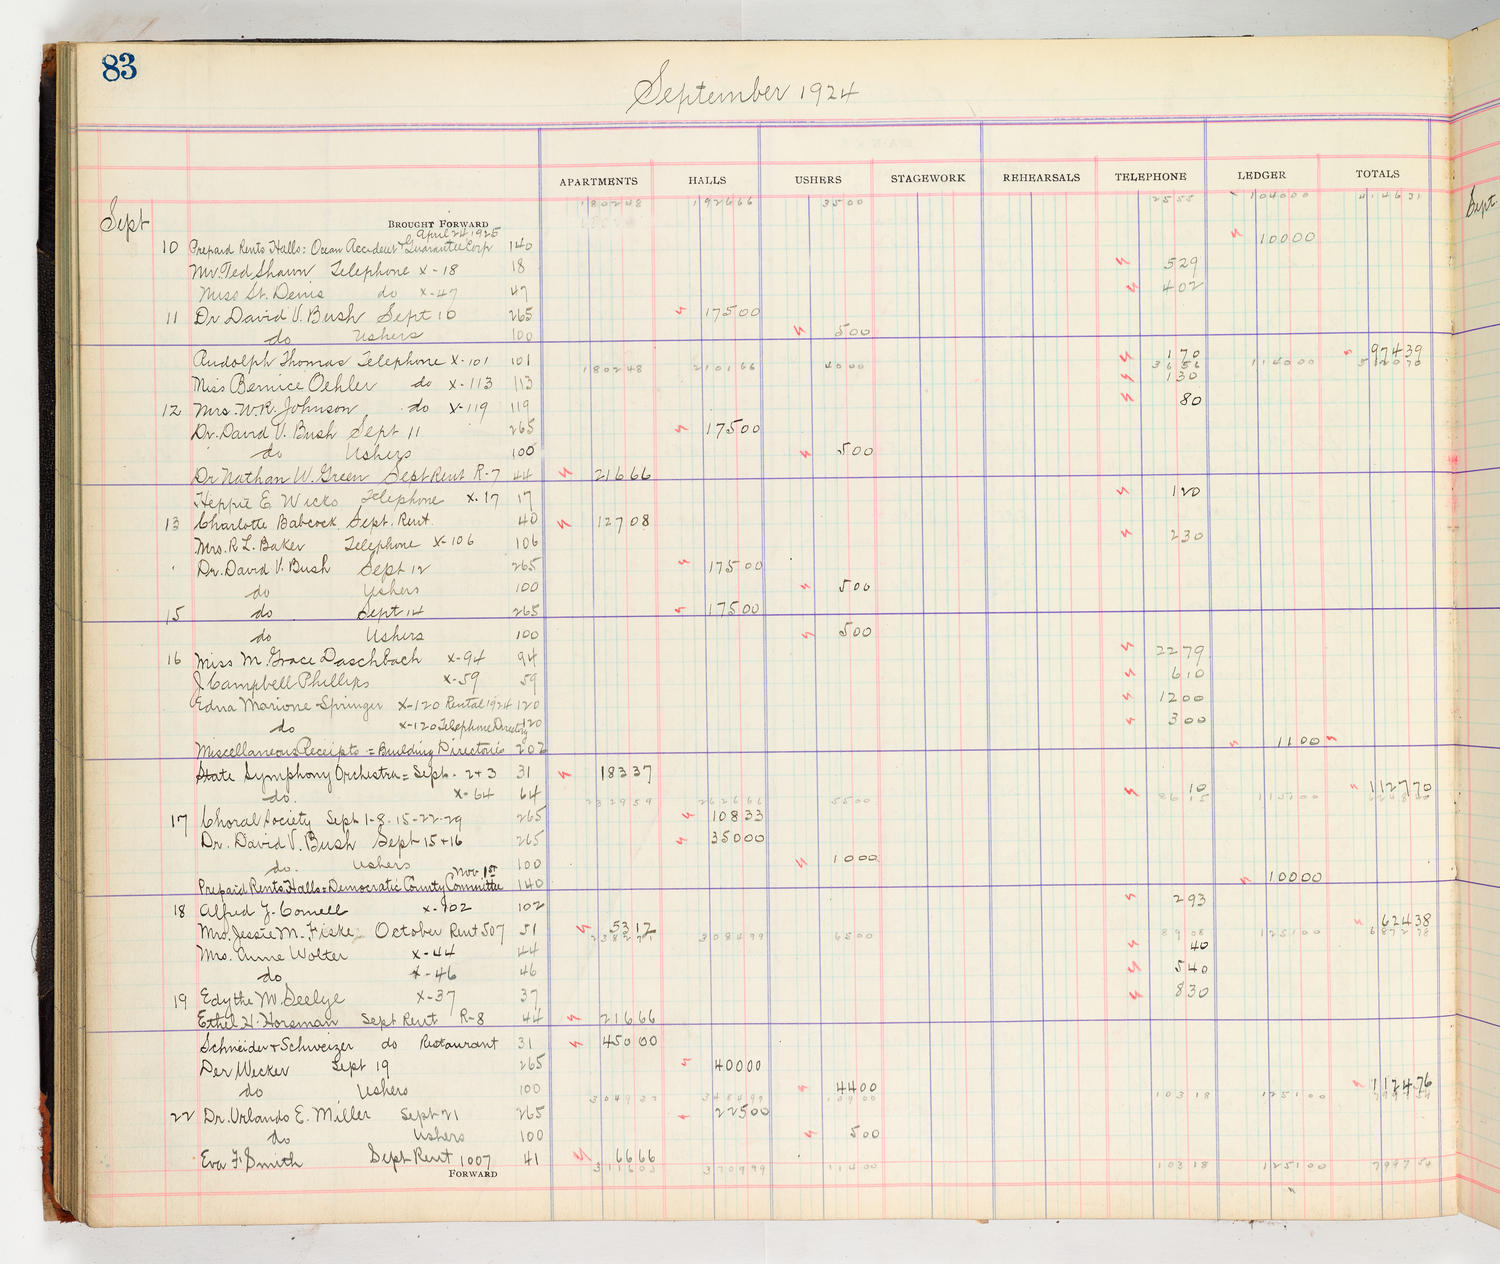 83
September 1924
APARTMENTS HALLS USHERS STAGEWORK REHEARSALS TELEPHONE LEDGER TOTALS
Sept BROUGHT FORWARD 180248 192666 3500 2555 104000 414631
April 24 1925
10 Prepaid Rents Halls: Ocean Accident & Guarantee Corp 140 10000
Mr. Ted Shawn Telephone X-18 18 529
Miss St. Denis do X-47 47 402
11 Dr David V. Bush Sept 10 265 17500
do Ushers 100 500
97439
Rudolph Thomas Telephone X-101 101 170
180248 210166 4000 3656 114000 512070
Miss Bernice Oehler do X-113 113 130
12 Mrs. W.R. Johnson do X-119 119 80
Dr. David V. Bush Sept 11 265 17500
do Ushers 100 500
Dr Nathan W. Green Sept Rent R-7 44 21666
Heppie E Wicks Telephone X-17 17 120
13 Charlotte Babcock Sept. Rent. 40 12708
Mrs. R L. Baker Telephone X-106 106 230
Dr. David V. Bush Sept 12 265 17500
do Ushers 100 500
15 do Sept 14 265 17500
do Ushers 100 500
16 Miss M. Grace Daschbach X-94 94 2279
J Campbell Phillips X-59 59 610
Edna Marione Springer X-120 Rental 1924 120 1200
do X-120 Telephone Directory 120 300
Miscellaneous Receipts = Building Directories 202 1100
State Symphony Orchestra = Sept. 2+3 31 18337
do. X-64 64 10 112770
232959 262666 5500 8615 115100
17 Choral Society Sept 1-8-15-22-29 265 10833
Dr. David V. Bush Sept 15+16 265 35000
do. Ushers 100 1000
Nov 1st
Prepaid Rents Halls = Democratic County Committee 140 10000
18 Alfred J. Cornell X-102 102 293
62438
Mrs. Jessie M. Fiske October Rent 507 51 5312
238271 308499 6500 8908 125100 687278
Mrs. Anne Wolter X-44 44 40
do X-46 46 540
19 Edythe M. Seelye X-37 37 830
Ethel H. Horsman Sept Rent R-8 44 21666
Schneider + Schweizer do Restaurant 31 45000
Der Wecker Sept 19 265 40000
do Ushers 100 4400 112476
304937 348499 10900 10318 125100 799754
22 Dr. Orlando E. Miller Sept 21 265 22500
do Ushers 100 500
Eva F. Smith Sept Rent 1007 41 6666
FORWARD 311603 370999 11400 10318 125100
Sept